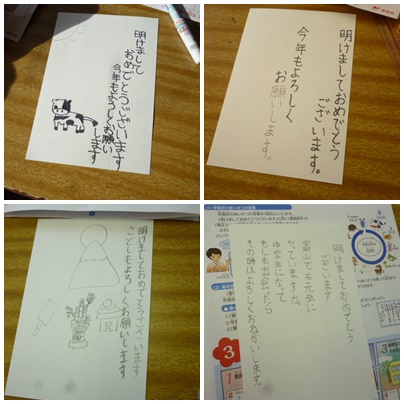 明けまして
おめでとうございます
今年もよろしくお願い
します
明けましておめでとう
ございます。
今年もよろしく
お願いします。
明けましておめでとうございます
ことしもよろしくお願いします
明けましておめでとう
ございます
富山でも元気に
やっていますか。
中学生になって
もしも出会ったら
その時はよろしくおねがいします。
3
1